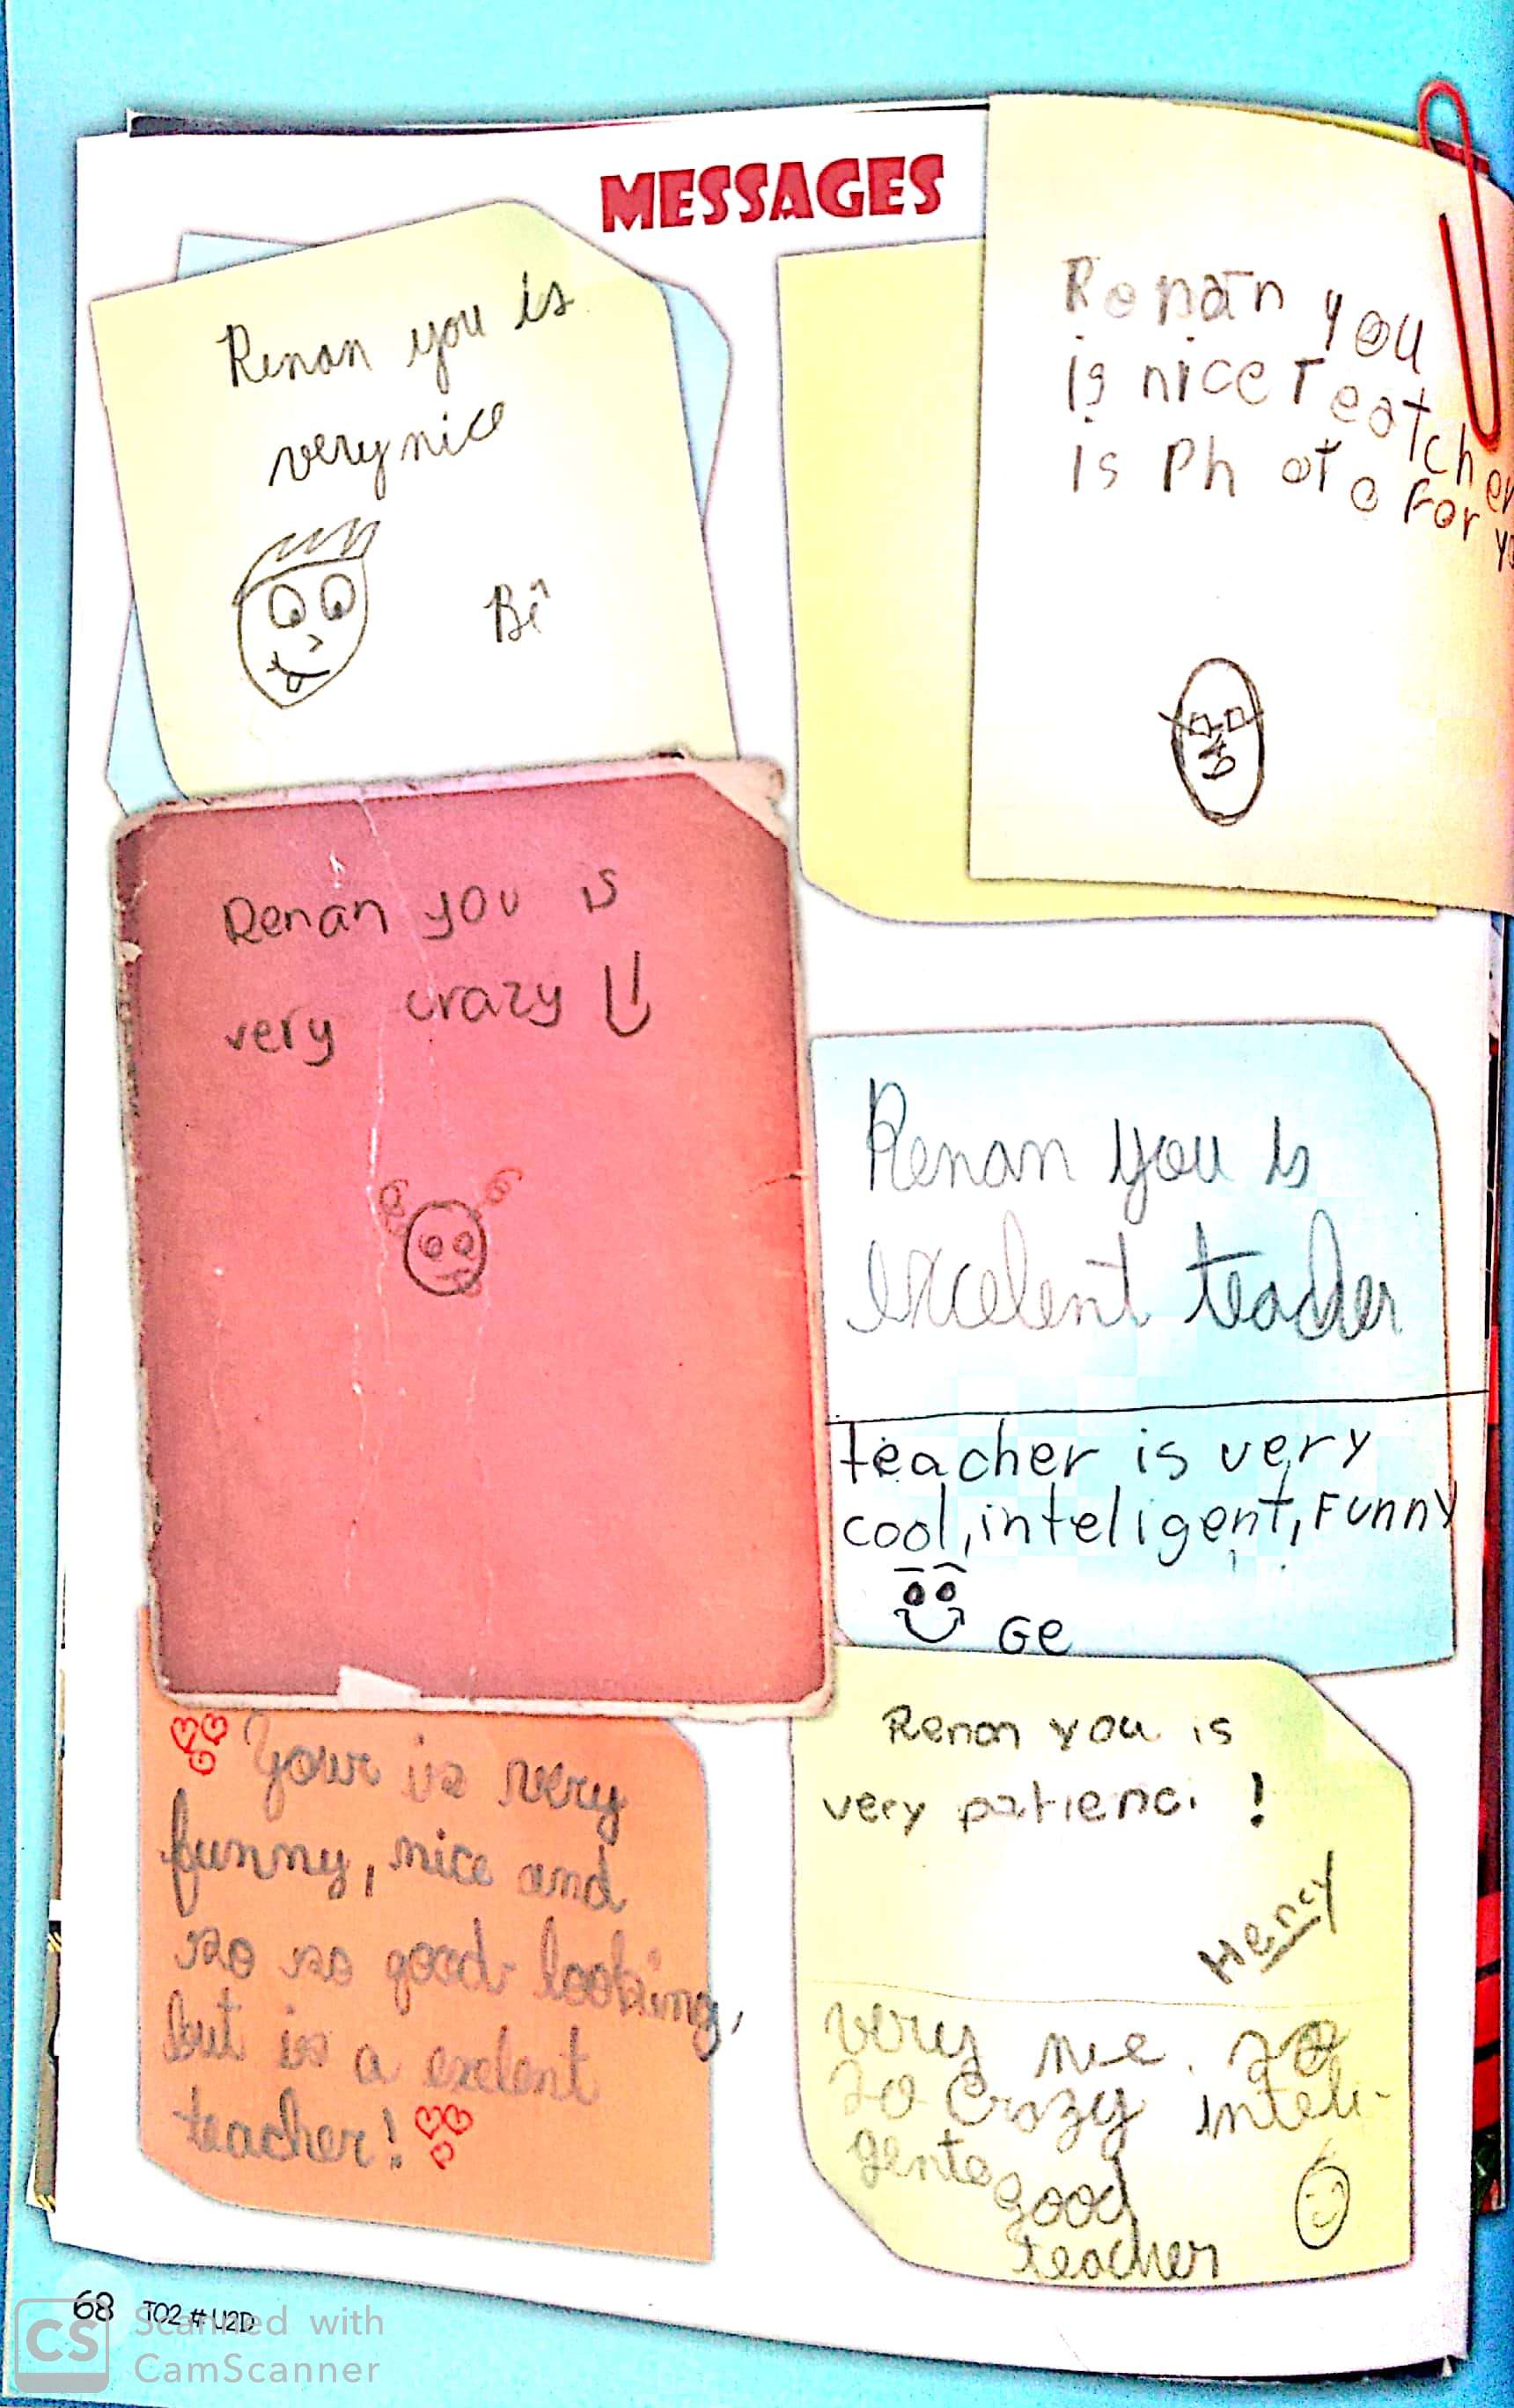 MESSAGES
Renan you is
very nice
Bî
Renan you
is nice Teatcher
is Photo for
Renan you is
very crazy
Renan you is
excelent teacher
teacher is very
cool, inteligent, Funny
Ge
Your is very
funny, nice and
so so good-looking,
but is a exelent
teacher!
Renan you is
very patienci !
Henry
very nice. so
so Crazy inteli-
gente
good
teacher
68 TO2 # U2D
CS Scanned with
CamScanner